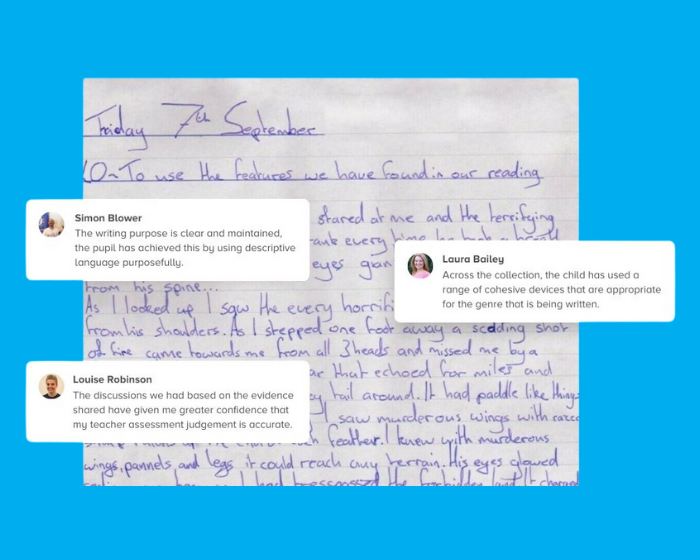 Friday 7th September
LO-To use the features we have found in our reading
stared at me and the terrifying
every time he took a
eyes
from his spine...
As I looked up I saw the every
from his shoulders. As I stepped one foot away a scolding shot
of fire came towards me from all 3 heads and missed me by a
that echoed for miles and
tail around. It had paddle like things
I saw murderous wings with
feather. I knew with murderous
wings, pannels and legs it could reach any terrain. His eyes glowed
I had the forbidden land. It
Simon Blower
The writing purpose is clear and maintained,
the pupil has achieved this by using descriptive
language purposefully.
Laura Bailey
Across the collection, the child has used a
range of cohesive devices that are appropriate
for the genre that is being written.
Louise Robinson
The discussions we had based on the evidence
shared have given me greater confidence that
my teacher assessment judgement is accurate.